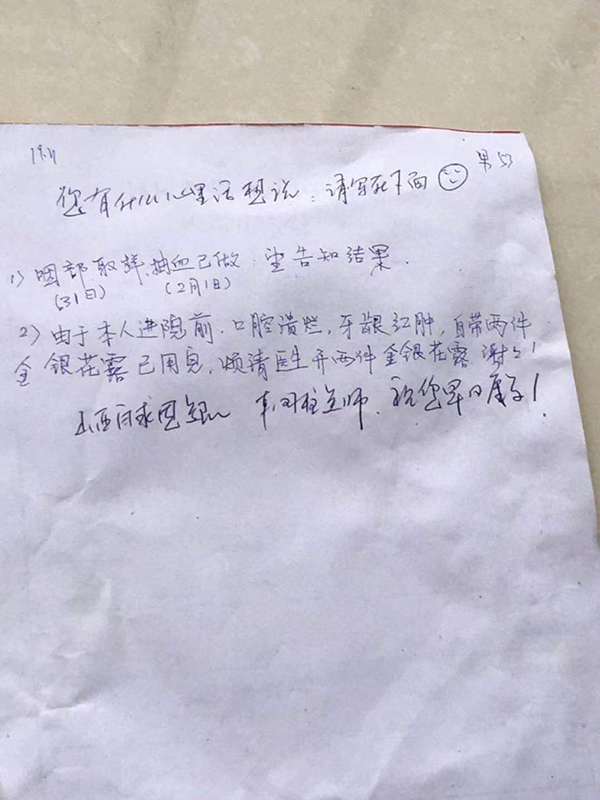 您有什么心里话想说：请写在下面
男 53
1）咽部取样，抽血已做．望告知结果．
（31日） （2月1日）
2）由于本人进院前．口腔溃烂，牙龈红肿，自带两件
金银花露已用完，烦请医生开两件金银花露 谢谢！
祝您早日康复！